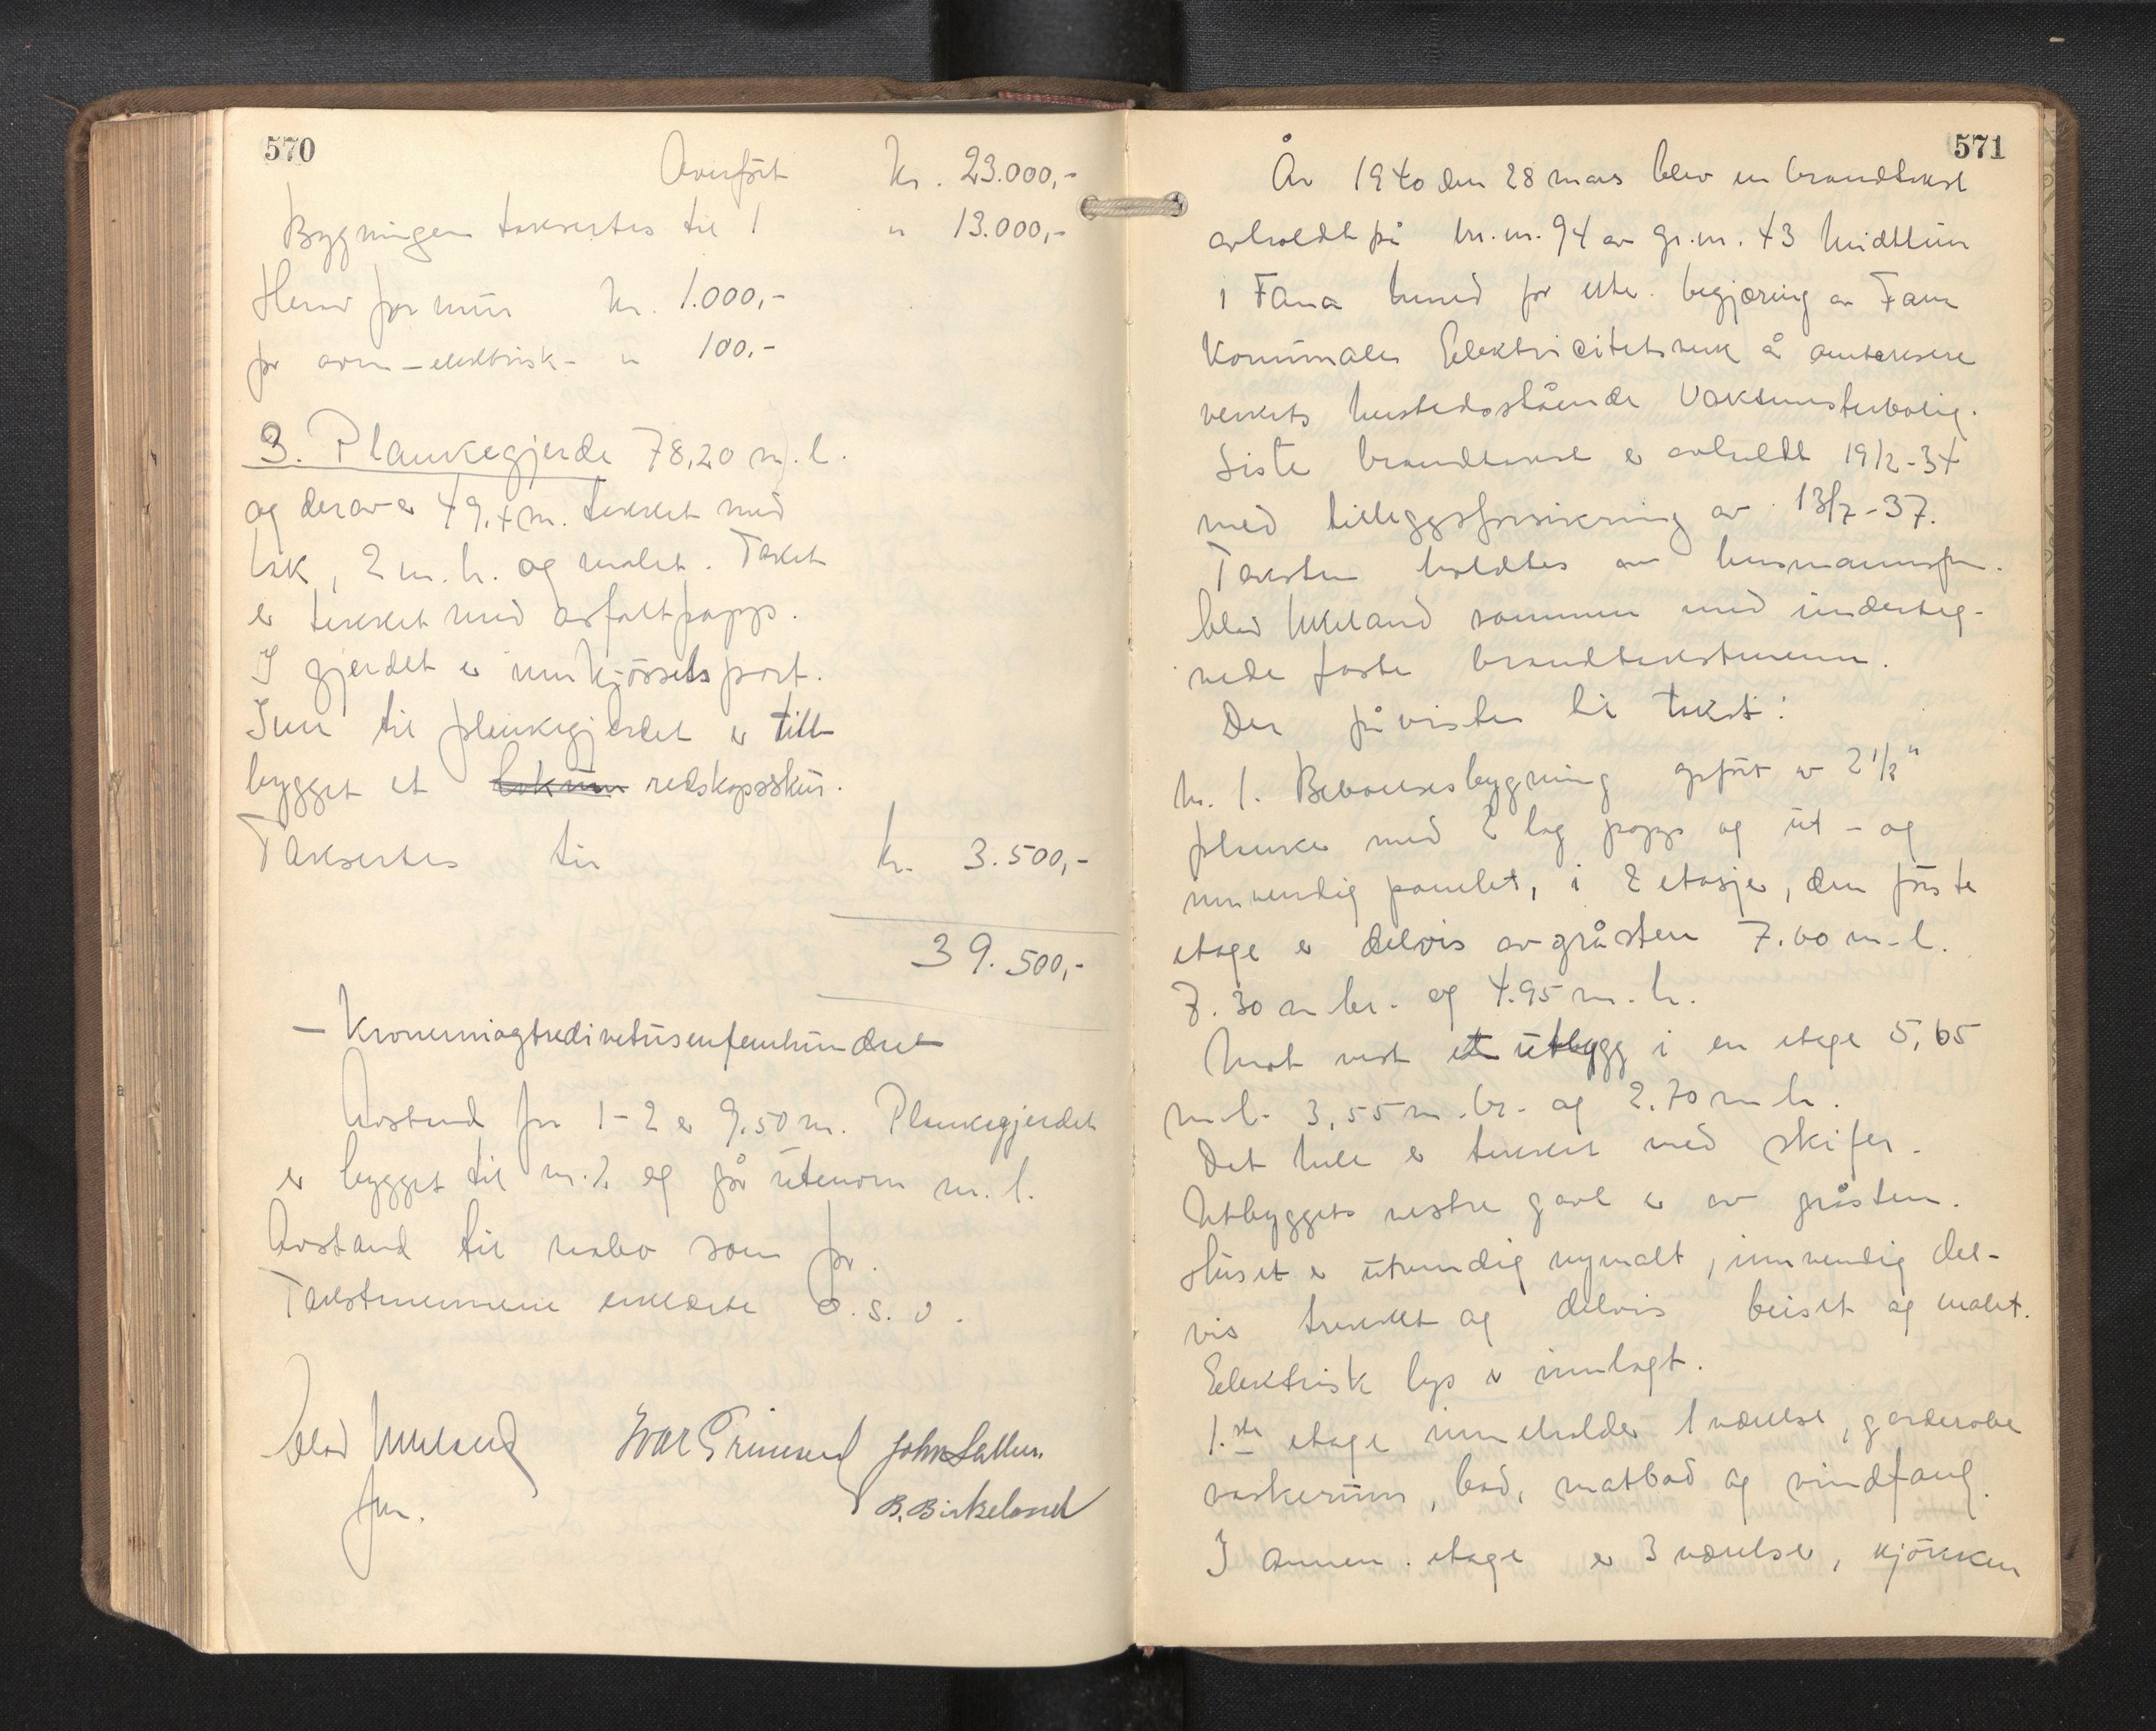 570
Overført kr. 23.000,-
Bygningen takseres til | " 13.000,-
Herav for mur kr. 1.000,-
for ovn - elektrisk - " 100.-
3. Plankegjerde 78,20 m. l.
og derav er 49,4 m. tekket med
tak, 2 m. h. og malet. Taket
er tekket med asfaltpapp.
I gjerdet er innkjørselsport.
Inn til plankegjerdet er till-
bygget et redskapsskur.
Takseres til kr. 3.500,-
39.500,-
- Kronerniogtredivetusenfemhundre -
Avstand fra 1-2 er 9,50 m. Plankegjerdet
er bygget til nr. 2 og går utenom nr. 1.
Avstand til nabo som før.
Takstmennene erklærte o. s. v.
Ivar Grimseid John
jun. B. Birkeland
571
År 1940 den 28 mars blev en brandtakst
avholdt på br. nr. 94 av gr. nr. 43 Midttun
i Fana herred for efter begjæring av Fana
Kommunale Elektricitetsverk å omtaksere
verkets hersteds stående Vaktmesterbolig.
Siste brandtakst er avholdt 19/2-34
med tilleggsforsikring av 13/7-37.
Taksten holdtes av lensmannsfm.
sammen med underteg-
nede faste brandtakstmenn.
Der påvistes til takst:
Nr. 1. Beboelsesbygning opført av 2 1/2"
planker med 2 lag papp og ut- og
innvendig panelet, i 2 etasjer, den første
etage er delvis av gråsten 7.60 m. l.
7.30 m br. og 4.95 m. h.
Mot vest et utbygg i en etage 5,65
m. l. 3,55 m. br. og 2.70 m h.
Det hele er tekket med skifer.
Utbyggets vestre gavl er av gråsten.
Huset er utvendig nymalt, innvendig del-
vis trukket og delvis beiset og malet.
Elektrisk lys er innlagt.
1.ste etage inneholder 1 værelse, garderobe
vaskerum, bad, matbod og vindfang.
I annen etage er 3 værelser, kjøkken